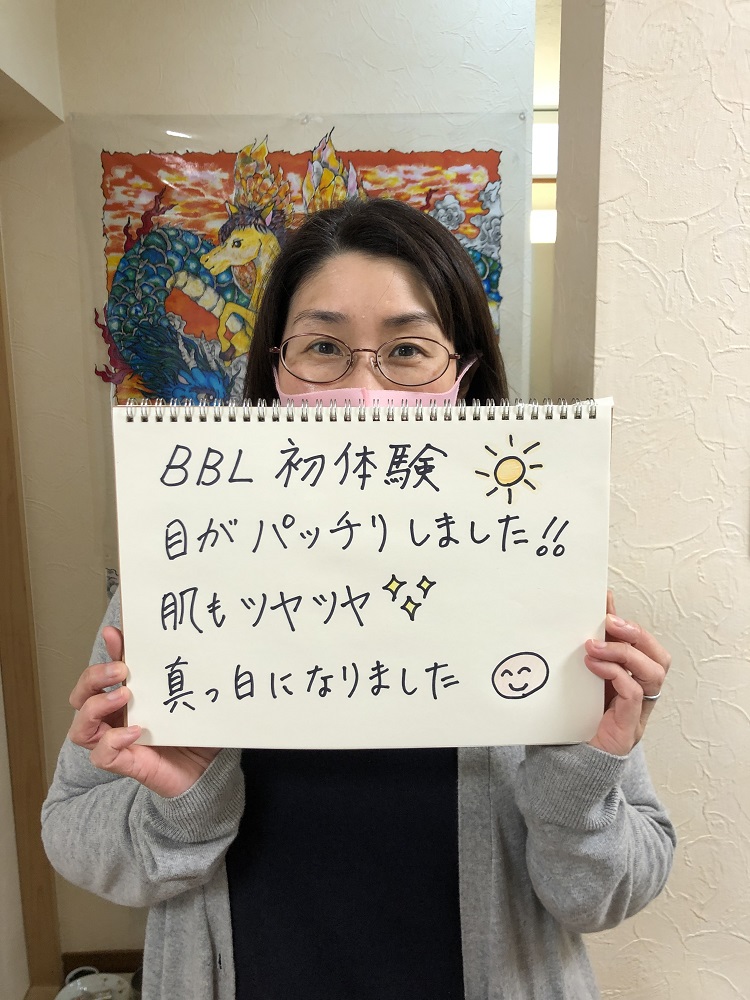 BBL 初体験
目がパッチリしました!!
肌もツヤツヤ
真っ白になりました